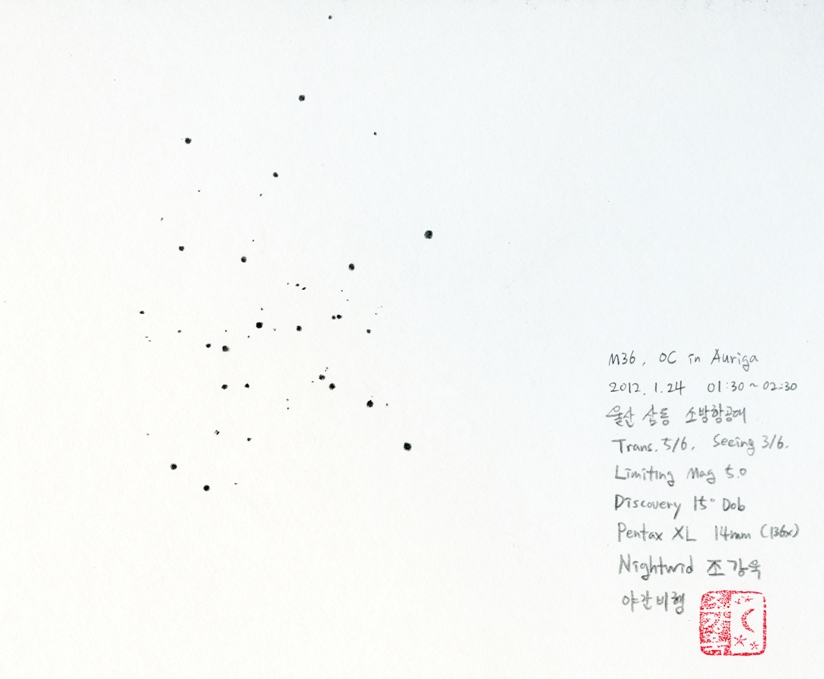 M36, OC in Auriga
2012. 1. 24 01:30 ~ 02:30
울산 삼동 소방항공대
Trans. 5/6, Seeing 3/6.
Limiting Mag 5.0
Discovery 15" Dob
Pentax XL 14mm (136x)
Nightwid 조강욱
야간비행